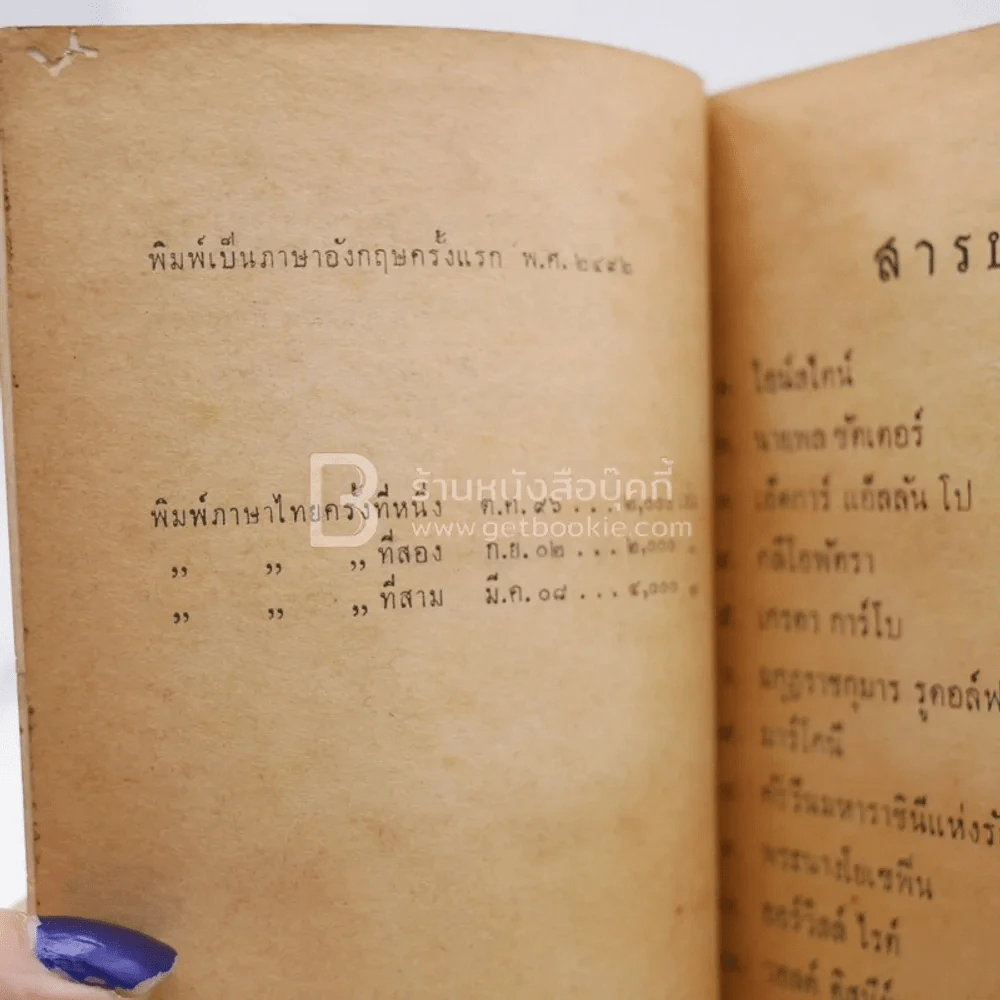 พิมพ์เป็นภาษาอังกฤษครั้งแรก พ.ศ. ๒๔๙๒
พิมพ์ภาษาไทยครั้งที่หนึ่ง ต.ค. ๙๖ ... ๒,๐๐๐
„ „ „ ที่สอง ก.ย. ๐๒ ... ๒,๐๐๐
„ „ „ ที่สาม มี.ค. ๐๘ ... ๔,๐๐๐
ร้านหนังสือบุ๊คกี้
www.getbookie.com
ไอน์สไตน์
นายพล
เอ็ดการ์ แอ็ลลัน โป
คลีโอพัตรา
เกรตา การ์โบ
มกุฎราชกุมาร รูดอล์ฟ
มาร์โคนี
พระนางโยเซฟีน
ออร์วิลล์ ไรต์